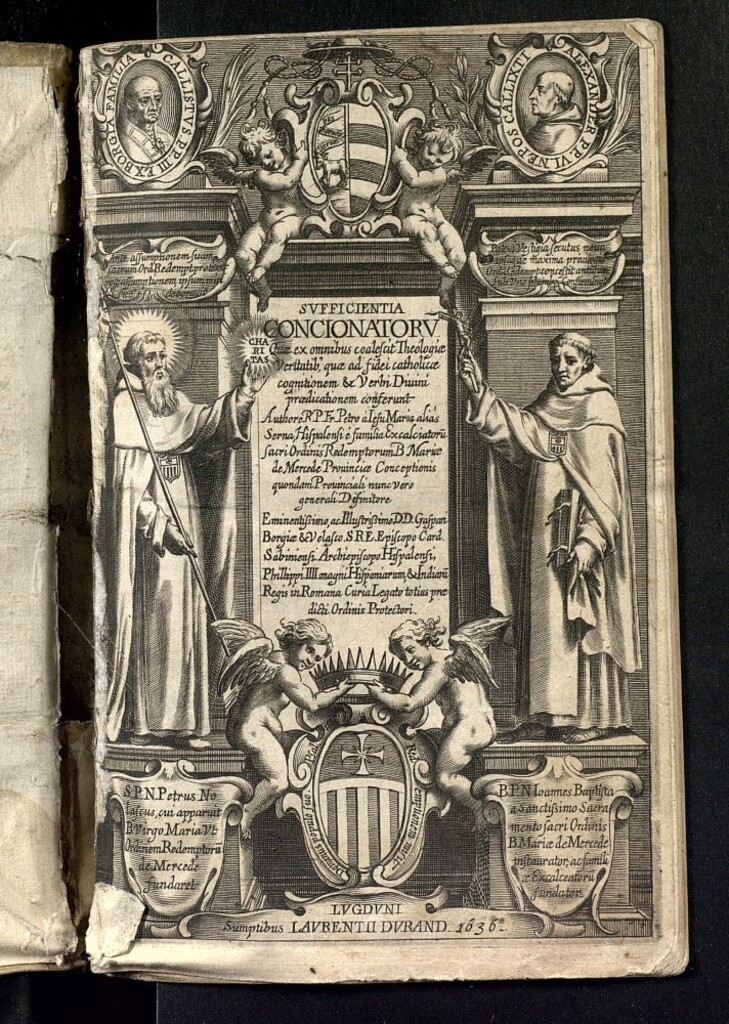 CALLISTVS PP. III EX BORGIÆ FAMILIA
ALEXANDER PP. VI. NEPOS CALLIXTI
Ante assumptionem suam
sacrum Ord. Redemptor
assumptionem ipsum
secutus
maxima
SVFFICIENTIA
CONCIONATORV
Quæ ex omnibus coalescit Theologiæ
Veritatib, quæ ad fidei catholicæ
cognitionem & Verbi Diuini
prædicationem conferunt
Authore R.P.Fr. Petro à Iesu Maria aliàs
Serna, Hispalensi è familia Excalciatorū
sacri Ordinis Redemptorum B. Mariæ
de Mercede Prouinciæ Conceptionis
quondam Prouinciali nunc vero
generali Definitore
Eminentissimo, ac Illustrissimo D.D. Gaspari
Borgiæ & Velasco, S.R.E. Episcopo Card.
Sabiniensi, Archiepiscopo Hispalensi,
Philippi IIII magni Hispaniarum, & Indiarū
Regis in Romana Curia Legato totius præ
dicti Ordinis Protectori.
CHA
RI
TAS
S.P.N. Petrus No
lascus, cui apparuit
B. Virgo Maria Vt
Ordinem Redemptorū
de Mercede
fundaret
B.P.N. Ioannes Baptista
a Sanctissimo Sacra
mento sacri Ordinis
B. Mariæ de Mercede
instaurator, ac famili
æ Excalceatorū
fundator.
Redemptionem misit
LVGDVNI
Sumptibus LAVRENTII DVRAND. 1636.